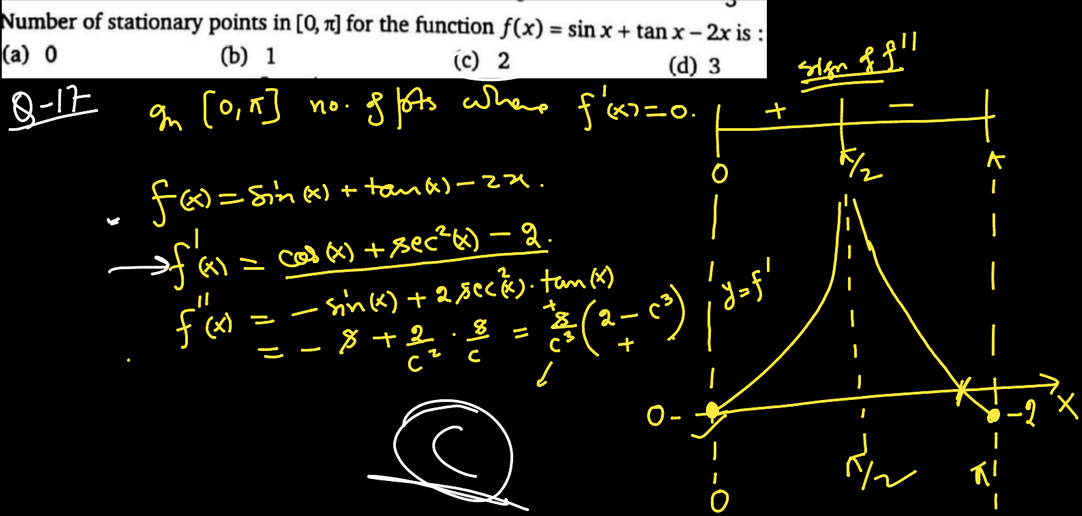 Number of stationary points in [0, π] for the function f(x) = sin x + tan x – 2x is :
(a) 0 (b) 1 (c) 2 (d) 3
Q-17 In [0, π] no. of pts where f'(x)=0.
f(x) = sin(x) + tan(x) – 2x.
f'(x) = cos(x) + sec²(x) – 2.
f''(x) = – sin(x) + 2 sec²(x) · tan(x)
= – s + 2/c² · s/c = s/c³ (2 – c³)
+ +
C
sign of f''
+ –
0 π/2 π
y=f'
0- -2 X
0 π/2 π